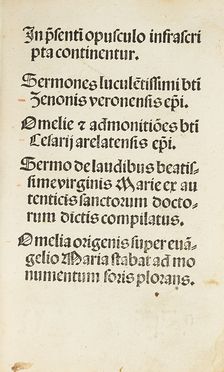 In p̄senti opusculo infrascri
pta continentur.
Sermones luculētissimi bt̄i
Zenonis veronensis ep̄i.
Omelie ⁊ admonitiōes bt̄i
Cesarij arelatensis ep̄i.
Sermo de laudibus beatis-
sime virginis Marie ex au
tenticis sanctorum docto-
rum dictis compilatus.
Omelia origenis super euā-
gelio Maria stabat ad mo
numentum foris plorans.